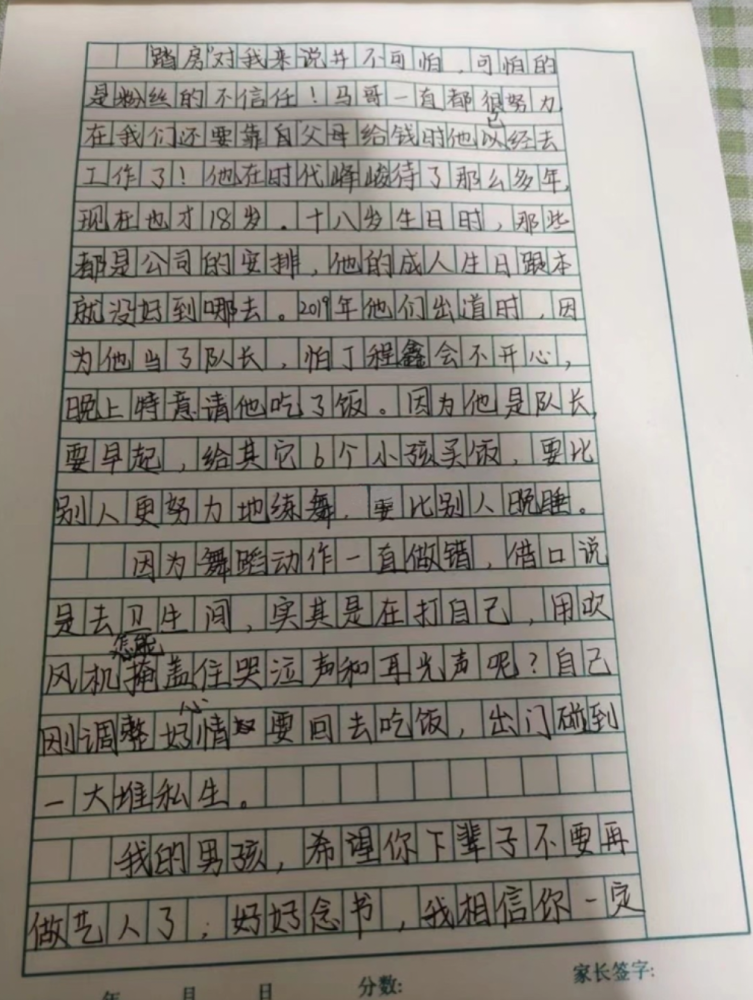 "踏房"对我来说并不可怕，可怕的
是粉丝的不信任！马哥一直都很努力
在我们还要靠自父母给钱时他以经去
己
工作了！他在时代峰峻待了那么多年，
现在也才18岁。十八岁生日时，那些
都是公司的安排，他的成人生日跟本
就没好到哪去。2019年他们出道时，因
为他当了队长，怕丁程鑫会不开心，
晚上特意请他吃了饭。因为他是队长，
要早起，给其它6个小孩买饭，要比
别人更努力地练舞，要比别人晚睡。
因为舞蹈动作一直做错，借口说
是去卫生间，实其是在打自己，用吹
怎能
风机掩盖住哭泣声和耳光声呢？自己
刚调整好情要回去吃饭，出门碰到
心
一大堆私生。
我的男孩，希望你下辈子不要再
做艺人了，好好念书，我相信你一定
年 月 日 分数： 家长签字：